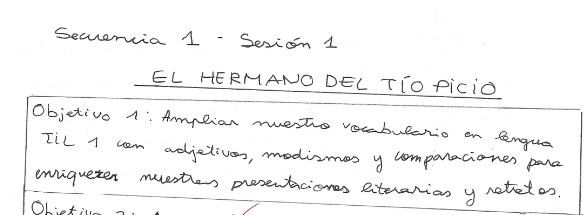 Secuencia 1 - Sesión 1
EL HERMANO DEL TÍO PICIO
Objetivo 1: Ampliar nuestro vocabulario en lengua
TIL 1 con adjetivos, modismos y comparaciones para
enriquezer nuestras presentaciones literarias y retratos.
Objetivo 2: